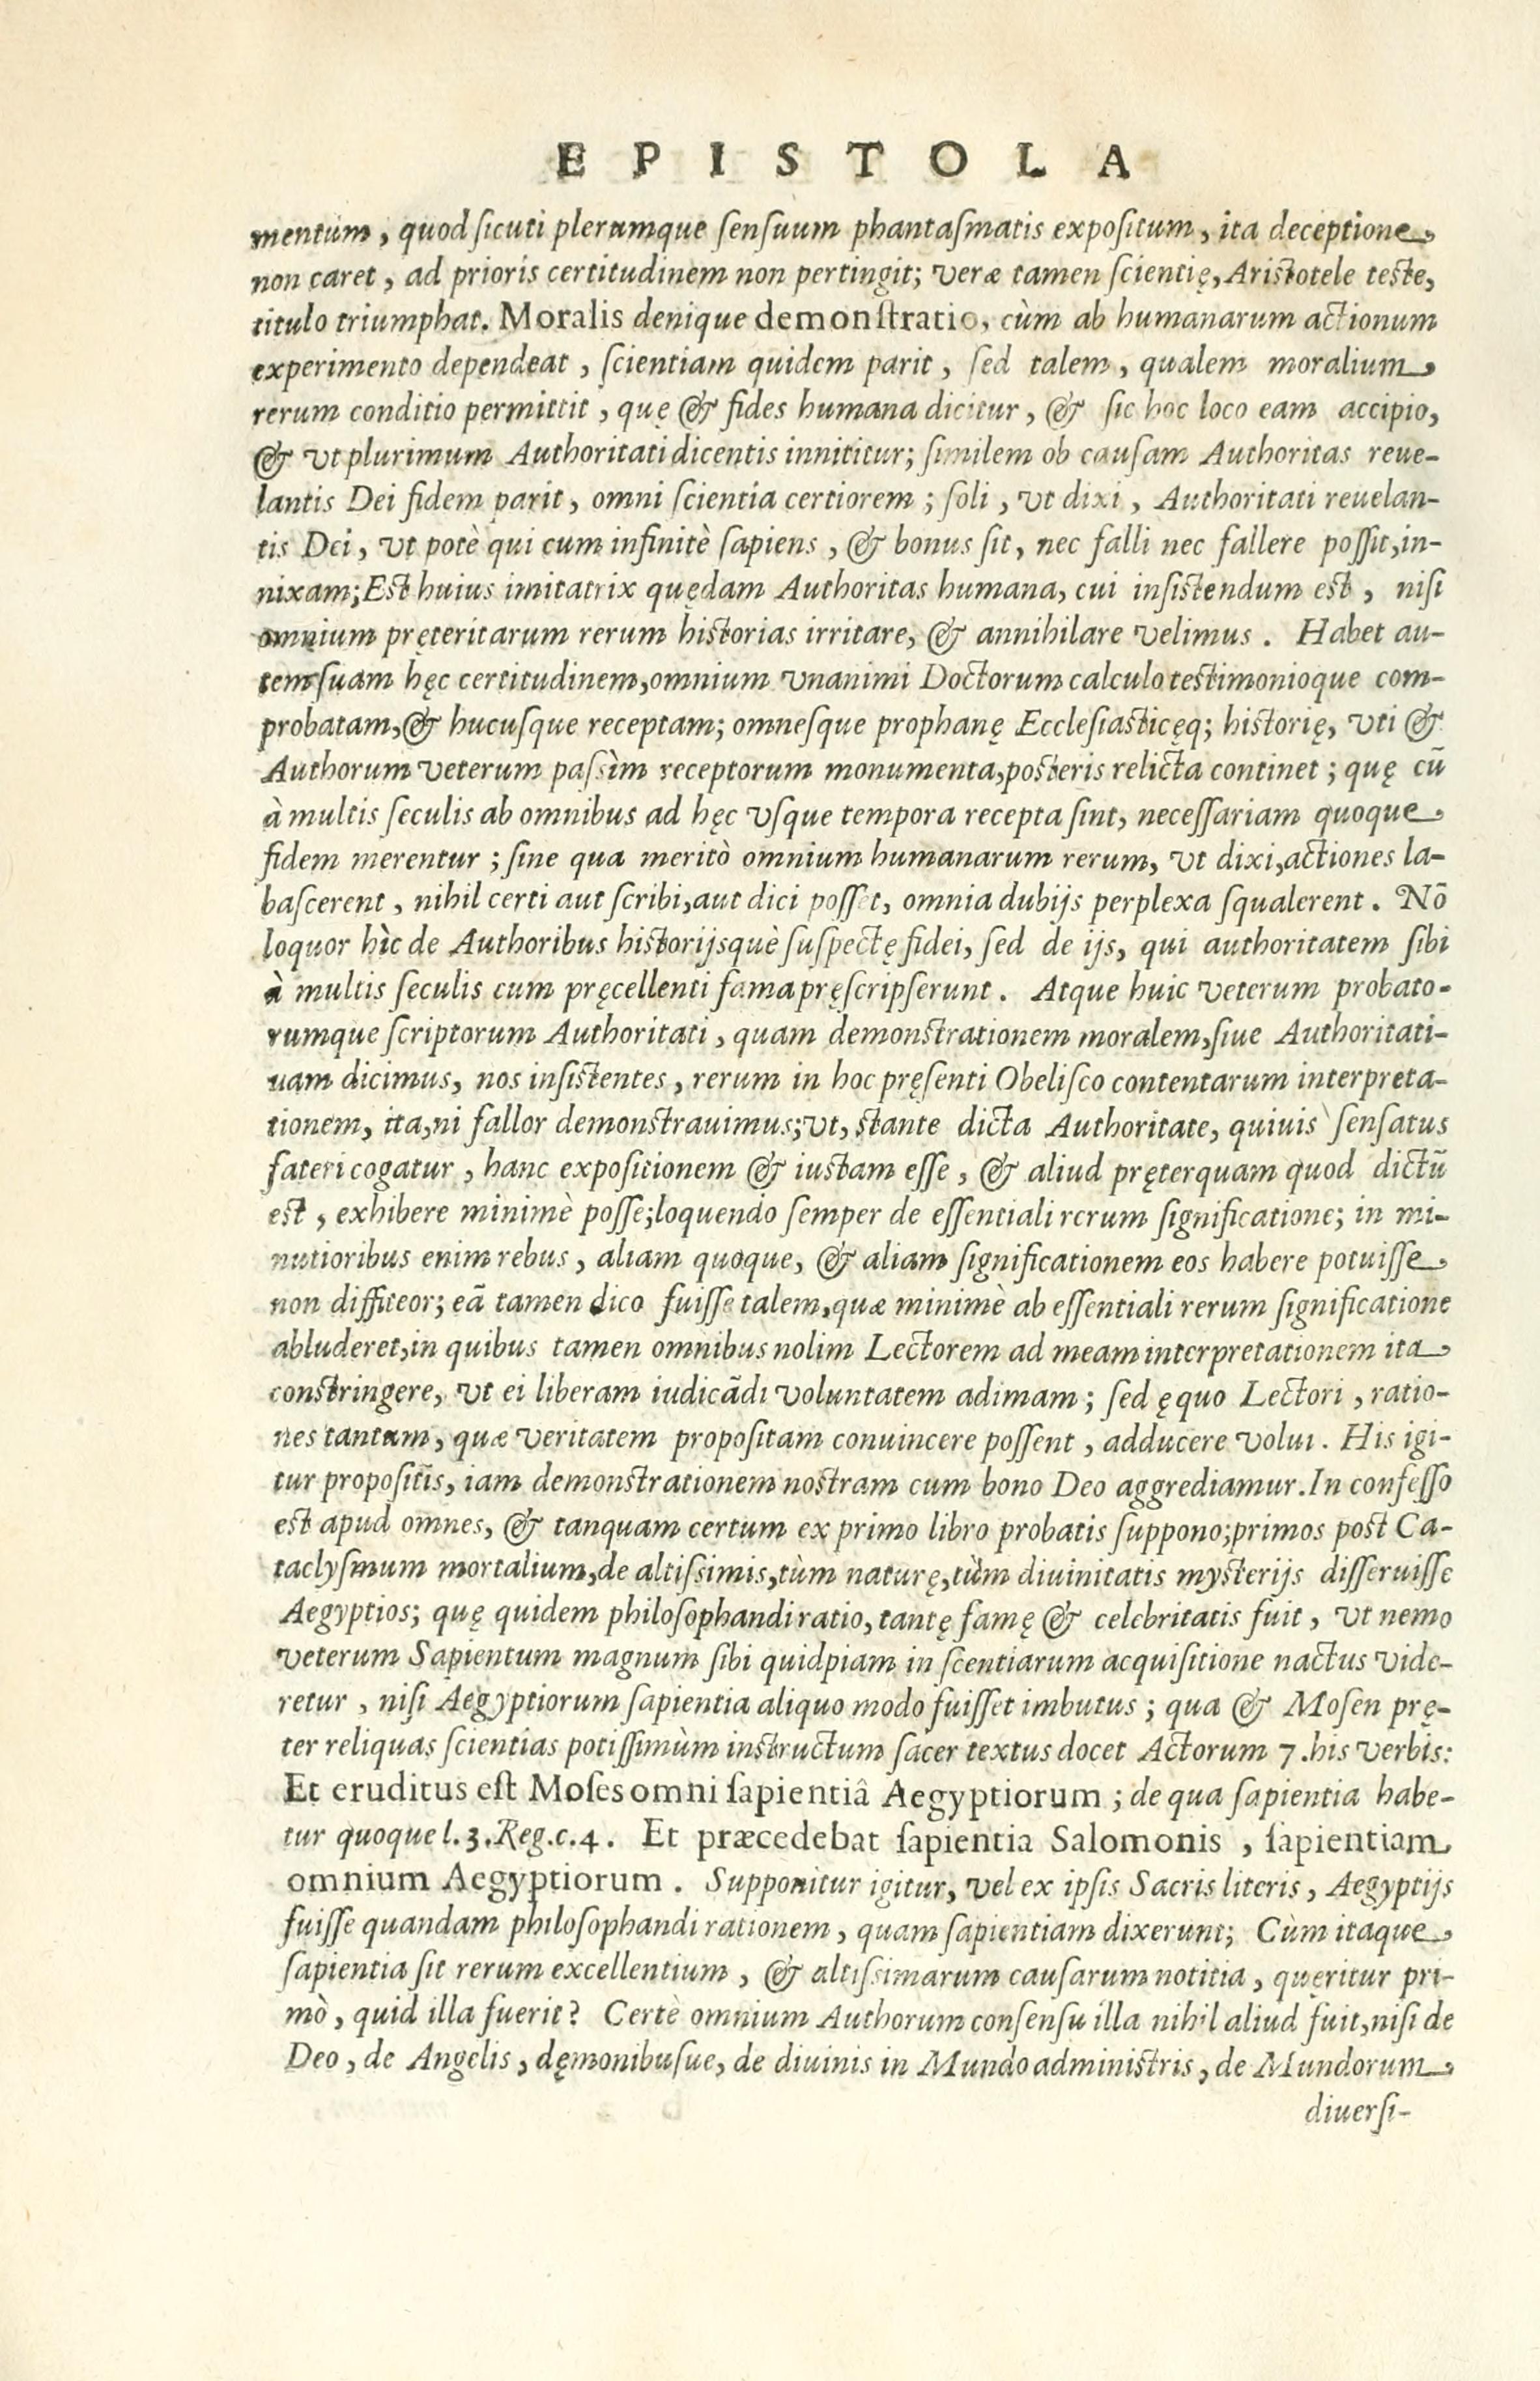 EPISTOLA
mentum, quod ſicuti plerumque ſenſuum phantaſmatis expoſitum, ita deceptione,
non caret, ad prioris certitudinem non pertingit; veræ tamen ſcientię, Ariſtotele teſte,
titulo triumphat. Moralis denique demonſtratio, cùm ab humanarum actionum
experimento dependeat, ſcientiam quidem parit, ſed talem, qualem moralium,
rerum conditio permittit, quę & fides humana dicitur, & ſic hoc loco eam accipio,
& vt plurimum Authoritati dicentis innititur; ſimilem ob cauſam Authoritas reue-
lantis Dei fidem parit, omni ſcientia certiorem; ſoli, vt dixi, Authoritati reuelan-
tis Dei, vt potè qui cum infinitè ſapiens, & bonus ſit, nec falli nec fallere poſſit, in-
nixam; Eſt huius imitatrix quędam Authoritas humana, cui inſiſtendum eſt, niſi
omnium pręteritarum rerum hiſtorias irritare, & annihilare velimus. Habet au-
tem ſuam hęc certitudinem, omnium vnanimi Doctorum calculo teſtimonioque com-
probatam, & hucuſque receptam; omneſque prophanę Eccleſiaſticęq; hiſtorię, vti &
Authorum veterum paſsìm receptorum monumenta, poſteris relicta continet; quę cū
à multis ſeculis ab omnibus ad hęc vſque tempora recepta ſint, neceſſariam quoque,
fidem merentur; ſine qua meritò omnium humanarum rerum, vt dixi, actiones la-
baſcerent, nihil certi aut ſcribi, aut dici poſſet, omnia dubijs perplexa ſqualerent. Nō
loquor hìc de Authoribus hiſtorijsquè ſuſpectę fidei, ſed de ijs, qui authoritatem ſibi
à multis ſeculis cum pręcellenti fama pręſcripſerunt. Atque huic veterum probato-
rumque ſcriptorum Authoritati, quam demonſtrationem moralem, ſiue Authoritati-
uam dicimus, nos inſiſtentes, rerum in hoc pręſenti Obeliſco contentarum interpreta-
tionem, ita, ni fallor demonſtrauimus; vt, ſtante dicta Authoritate, quiuis ſenſatus
fateri cogatur, hanc expoſitionem & iuſtam eſſe, & aliud pręterquam quod dictū
eſt, exhibere minimè poſſe; loquendo ſemper de eſſentiali rerum ſignificatione; in mi-
nutioribus enim rebus, aliam quoque, & aliam ſignificationem eos habere potuiſſe,
non diffiteor; eā tamen dico fuiſſe talem, quæ minimè ab eſſentiali rerum ſignificatione
abluderet, in quibus tamen omnibus nolim Lectorem ad meam interpretationem ita,
conſtringere, vt ei liberam iudicādi voluntatem adimam; ſed ęquo Lectori, ratio-
nes tantum, quæ veritatem propoſitam conuincere poſſent, adducere volui. His igi-
tur propoſitis, iam demonſtrationem noſtram cum bono Deo aggrediamur. In confeſſo
eſt apud omnes, & tanquam certum ex primo libro probatis ſuppono; primos poſt Ca-
taclyſmum mortalium, de altiſsimis, tùm naturę, tùm diuinitatis myſterijs diſſeruiſſe
Aegyptios; quę quidem philoſophandi ratio, tantę famę & celebritatis fuit, vt nemo
veterum Sapientum magnum ſibi quidpiam in ſcentiarum acquiſitione nactus vide-
retur, niſi Aegyptiorum ſapientia aliquo modo fuiſſet imbutus; qua & Moſen prę-
ter reliquas ſcientias potiſſimùm inſtructum ſacer textus docet Actorum 7. his verbis:
Et eruditus eſt Moſes omni ſapientiâ Aegyptiorum; de qua ſapientia habe-
tur quoque l. 3. Reg. c. 4. Et præcedebat ſapientia Salomonis, ſapientiam
omnium Aegyptiorum. Supponitur igitur, vel ex ipſis Sacris literis, Aegyptijs
fuiſſe quandam philoſophandi rationem, quam ſapientiam dixerunt; Cùm itaque,
ſapientia ſit rerum excellentium, & altiſsimarum cauſarum notitia, quęritur pri-
mò, quid illa fuerit? Certè omnium Authorum conſenſu illa nihil aliud fuit, niſi de
Deo, de Angelis, dęmonibuſue, de diuinis in Mundo adminiſtris, de Mundorum,
diuerſi-